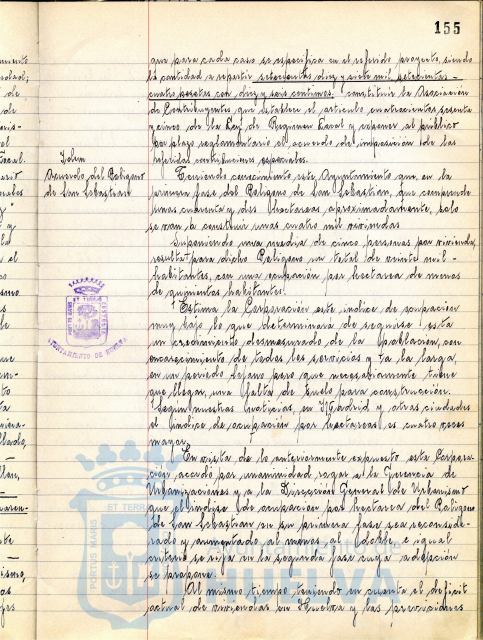 155
que para cada caso se especifica en el referido proyecto, siendo
la cantidad a repartir setecientas diez y siete mil setecientas
cuatro pesetas con diez y seis centimos. Constituir la Asociación
de Contribuyentes que establece el articulo cuatrocientos sesenta
y cinco de la Ley de Regimen Local y exponer al público
por plazo reglamentario el acuerdo de imposición de las
referidas contribuciones especiales.
Idem
Acuerdo del Poligono
de San Sebastian
Teniendo conocimiento este Ayuntamiento que en la
primera fase del Poligono de San Sebastian, que comprende
unas cuarenta y dos Hectareas aproximadamente, solo
se van a construir unas cuatro mil viviendas
Suponiendo una media de cinco personas por vivienda,
resulta para dicho Poligono un total de veinte mil
habitantes, con una ocupación por hectarea de menos
de quinientos habitantes.
Estima la Corporación este indice de ocupacion
muy bajo lo que determinaria de seguirse esta
un crecimiento desmesurado de la población, con
encarecimiento de todos los servicios y a la larga,
en un periodo lejano pero que necesariamente tiene
que llegar, una falta de suelo para construcción.
Segun nuestras noticias, en Madrid y otras ciudades
el indice de ocupación por hectareas es cuatro veces
mayor.
En vista de lo anteriormente expuesto esta Corpora-
ción acordó por unanimidad rogar a la Gerencia de
Urbanizaciones y a la Dirección General de Urbanismo
que el indice de ocupación por hectarea del Poligono
de San Sebastian en su primera fase sea reconside-
rado y aumentado al menos al doble e igual
criterio se siga en la segunda fase cuya adopción
se propone.
Al mismo tiempo teniendo en cuenta el deficit
actual de viviendas en Huelva y las previsiones
AYUNTAMIENTO DE HUELVA
PORTUS MARIS
ET TERRAE
HUELVA